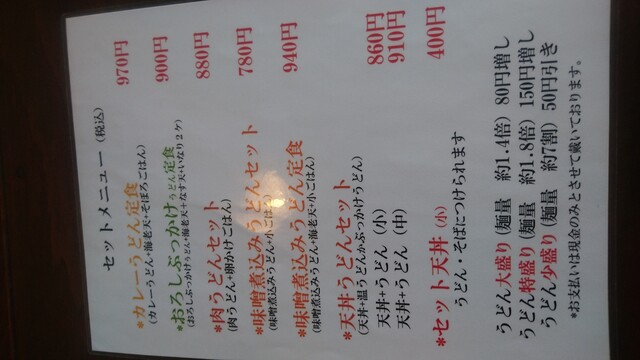 セットメニュー（税込）
*カレーうどん定食 970円
（カレーうどん+海老天+そぼろごはん）
*おろしぶっかけうどん定食 900円
（おろしぶっかけうどん+海老天+なす天+いなり2ケ）
*肉うどんセット 880円
（肉うどん+卵かけごはん）
*味噌煮込みうどんセット 780円
（味噌煮込みうどん+小ごはん）
*味噌煮込みうどん定食 940円
（味噌煮込みうどん+海老天+小ごはん）
*天丼うどんセット
（天丼+温うどんかぶっかけうどん）
天丼+うどん（小） 860円
天丼+うどん（中） 910円
*セット天丼（小） 400円
うどん・そばにつけられます
うどん大盛り（麺量 約1.4倍）80円増し
うどん特盛り（麺量 約1.8倍）150円増し
うどん少盛り（麺量 約7割）50円引き
*お支払いは現金のみとさせて戴いております。